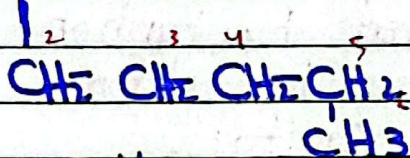 2 3 4 5
CH2- CH2 CH2-CH2
CH3